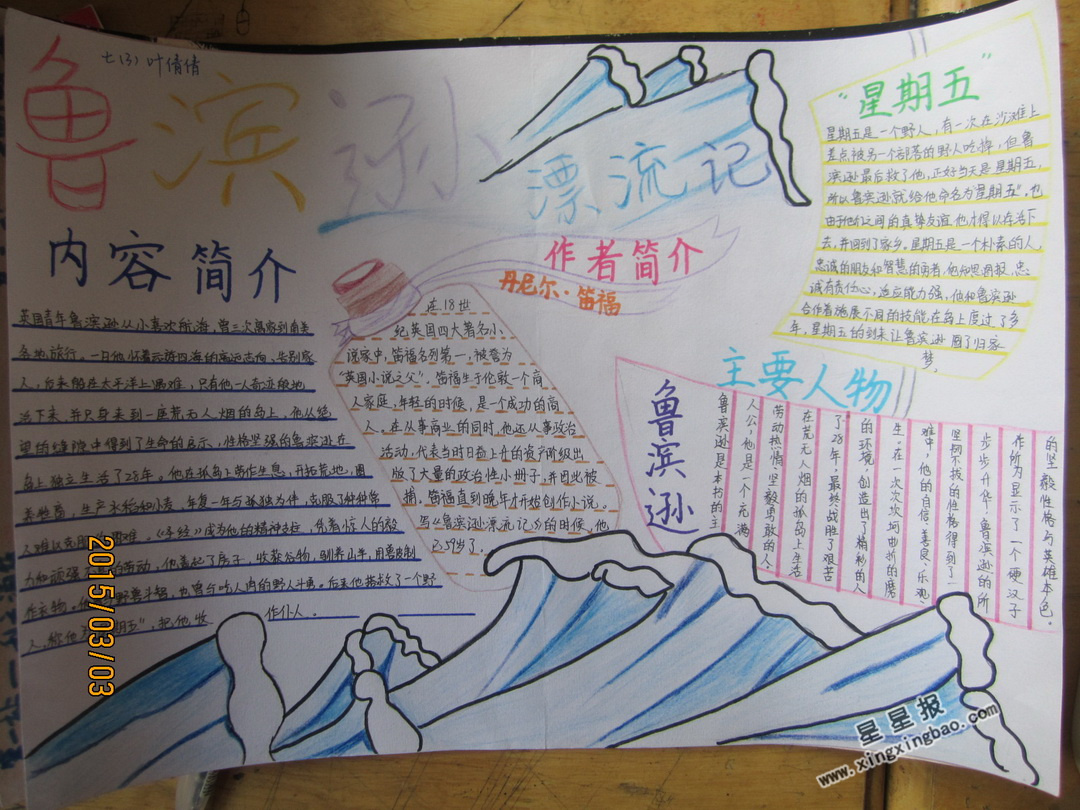 七(3) 叶倩倩
鲁滨逊
漂流记
内容简介
英国青年鲁滨逊从小喜欢航海,曾三次离家到南美
各地旅行,一日他怀着云游四海的高远志向,告别家
人,
太平洋上遇难,只有他一人奇迹般地
活下来,并只身来到一座荒无人烟的岛上,他从绝
望的缝隙中得到了生命的启示,性格坚强的鲁滨逊在
岛上独立生活了28年,他在孤岛上劳作生息,开拓荒地,圈
养牲畜,生产水稻和小麦,年复一年与孤独为伴,克服了种种常
人难以克服的困难。《圣经》成为他的精神支柱,凭着惊人的毅
力和顽强的劳动,他盖起了房子,收获谷物,驯养山羊,用兽皮制
作衣物,
野兽斗智,也曾与吃人肉的野人斗勇,后来他搭救了一个野
人,称他为
期五",把他收
作仆人。
作者简介
丹尼尔·笛福
在18世
纪英国四大著名小
说家中,笛福名列第一,被誉为
“英国小说之父”。笛福生于伦敦一个商
人家庭,年轻的时候,是一个成功的商
人。在从事商业的同时,他还从事政治
活动,代表当时日益上升的资产阶级出
版了大量的政治性小册子,并因此被
捕。笛福直到晚年才开始创作小说。
写《鲁滨逊漂流记》的时候,他
已59岁了。
“星期五”
星期五是一个野人,有一次在沙滩上
差点被另一个部落的野人吃掉,但鲁
滨逊最后救了他,正好当天是星期五,
所以鲁滨逊就给他命名为“星期五”。也
由于他们之间的真挚友谊他才得以在活下
去,并回到了家乡。星期五是一个朴素的人,
忠诚的朋友和智慧的勇者,他知恩图报,忠
诚有责任心,适应能力强,他和鲁滨逊
合作着施展不同的技能,在岛上度过了多
年,星期五的到来让鲁滨逊圆了归家
梦。
主要人物
鲁滨逊
鲁滨逊是本书的主
人公,他是一个充满
劳动热情,坚毅勇敢的人
在荒无人烟的孤岛上生活
了28年,最终战胜了艰苦
的环境,创造出了精彩的人
生。在一次次坎坷曲折的磨
难中,他的自信、善良、乐观、
坚韧不拔的性格得到了一
步步升华。鲁滨逊的所
作所为显示了一个硬汉子
的坚毅性格与英雄本色。
2015/03/03
星星报
www.xingxingbao.com